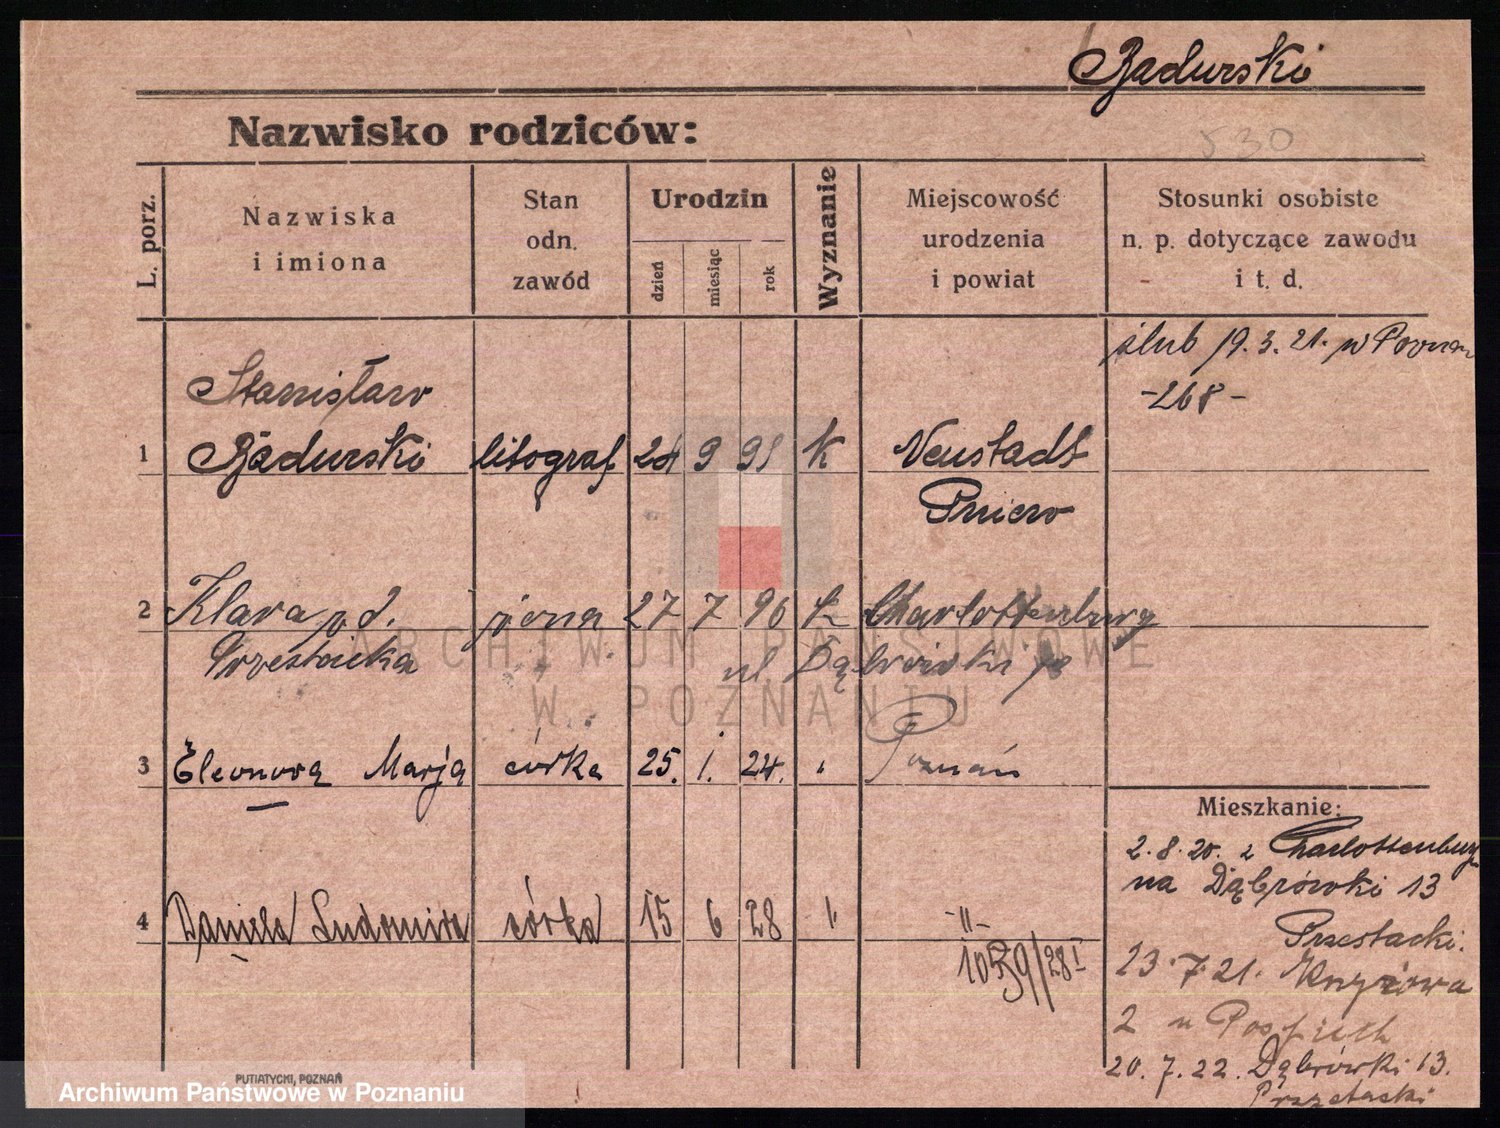 Badurski
Nazwisko rodziców:
530
L. porz.
Nazwiska
i imiona
Stan
odn.
zawód
Urodzin
dzień
miesiąc
rok
Wyznanie
Miejscowość
urodzenia
i powiat
Stosunki osobiste
n. p. dotyczące zawodu
i t. d.
ślub 19.3.21. w Poznan
-268-
Stanisław
1 Badurski litograf 24 9 91 k Neustadt
Pniew
2 Klara z d. żona 27 7 96 k Charlottenburg
ul Dąbrówki
3 Eleonora Marja córka 25. 1. 24. " Poznań
4 Daniela Ludomira córka 15 6 28 " -"-
1059/28 I
Mieszkanie:
2.8.20. z Charlottenburg
na Dąbrówki 13
Przestacki.
23.7.21. Knyżowa
2 u Pospiech
20.7.22. Dąbrówki 13.
Przestacki
ARCHIWUM PAŃSTWOWE
W POZNANIU
PUTIATYCKI, POZNAŃ
Archiwum Państwowe w Poznaniu